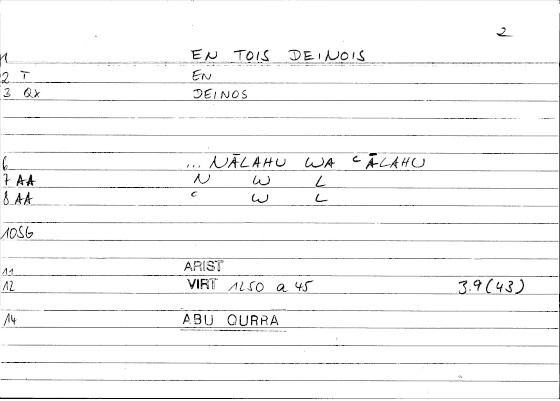 2
1 EN TOIS DEINOIS
2 T EN
3 Qx DEINOS
6 ... NĀLAHU WA ʿĀLAHU
7 AA N W L
8 AA ʿ W L
10SG
11 ARIST
12 VIRT 1250 a 45 3.9(43)
14 ABU QURRA